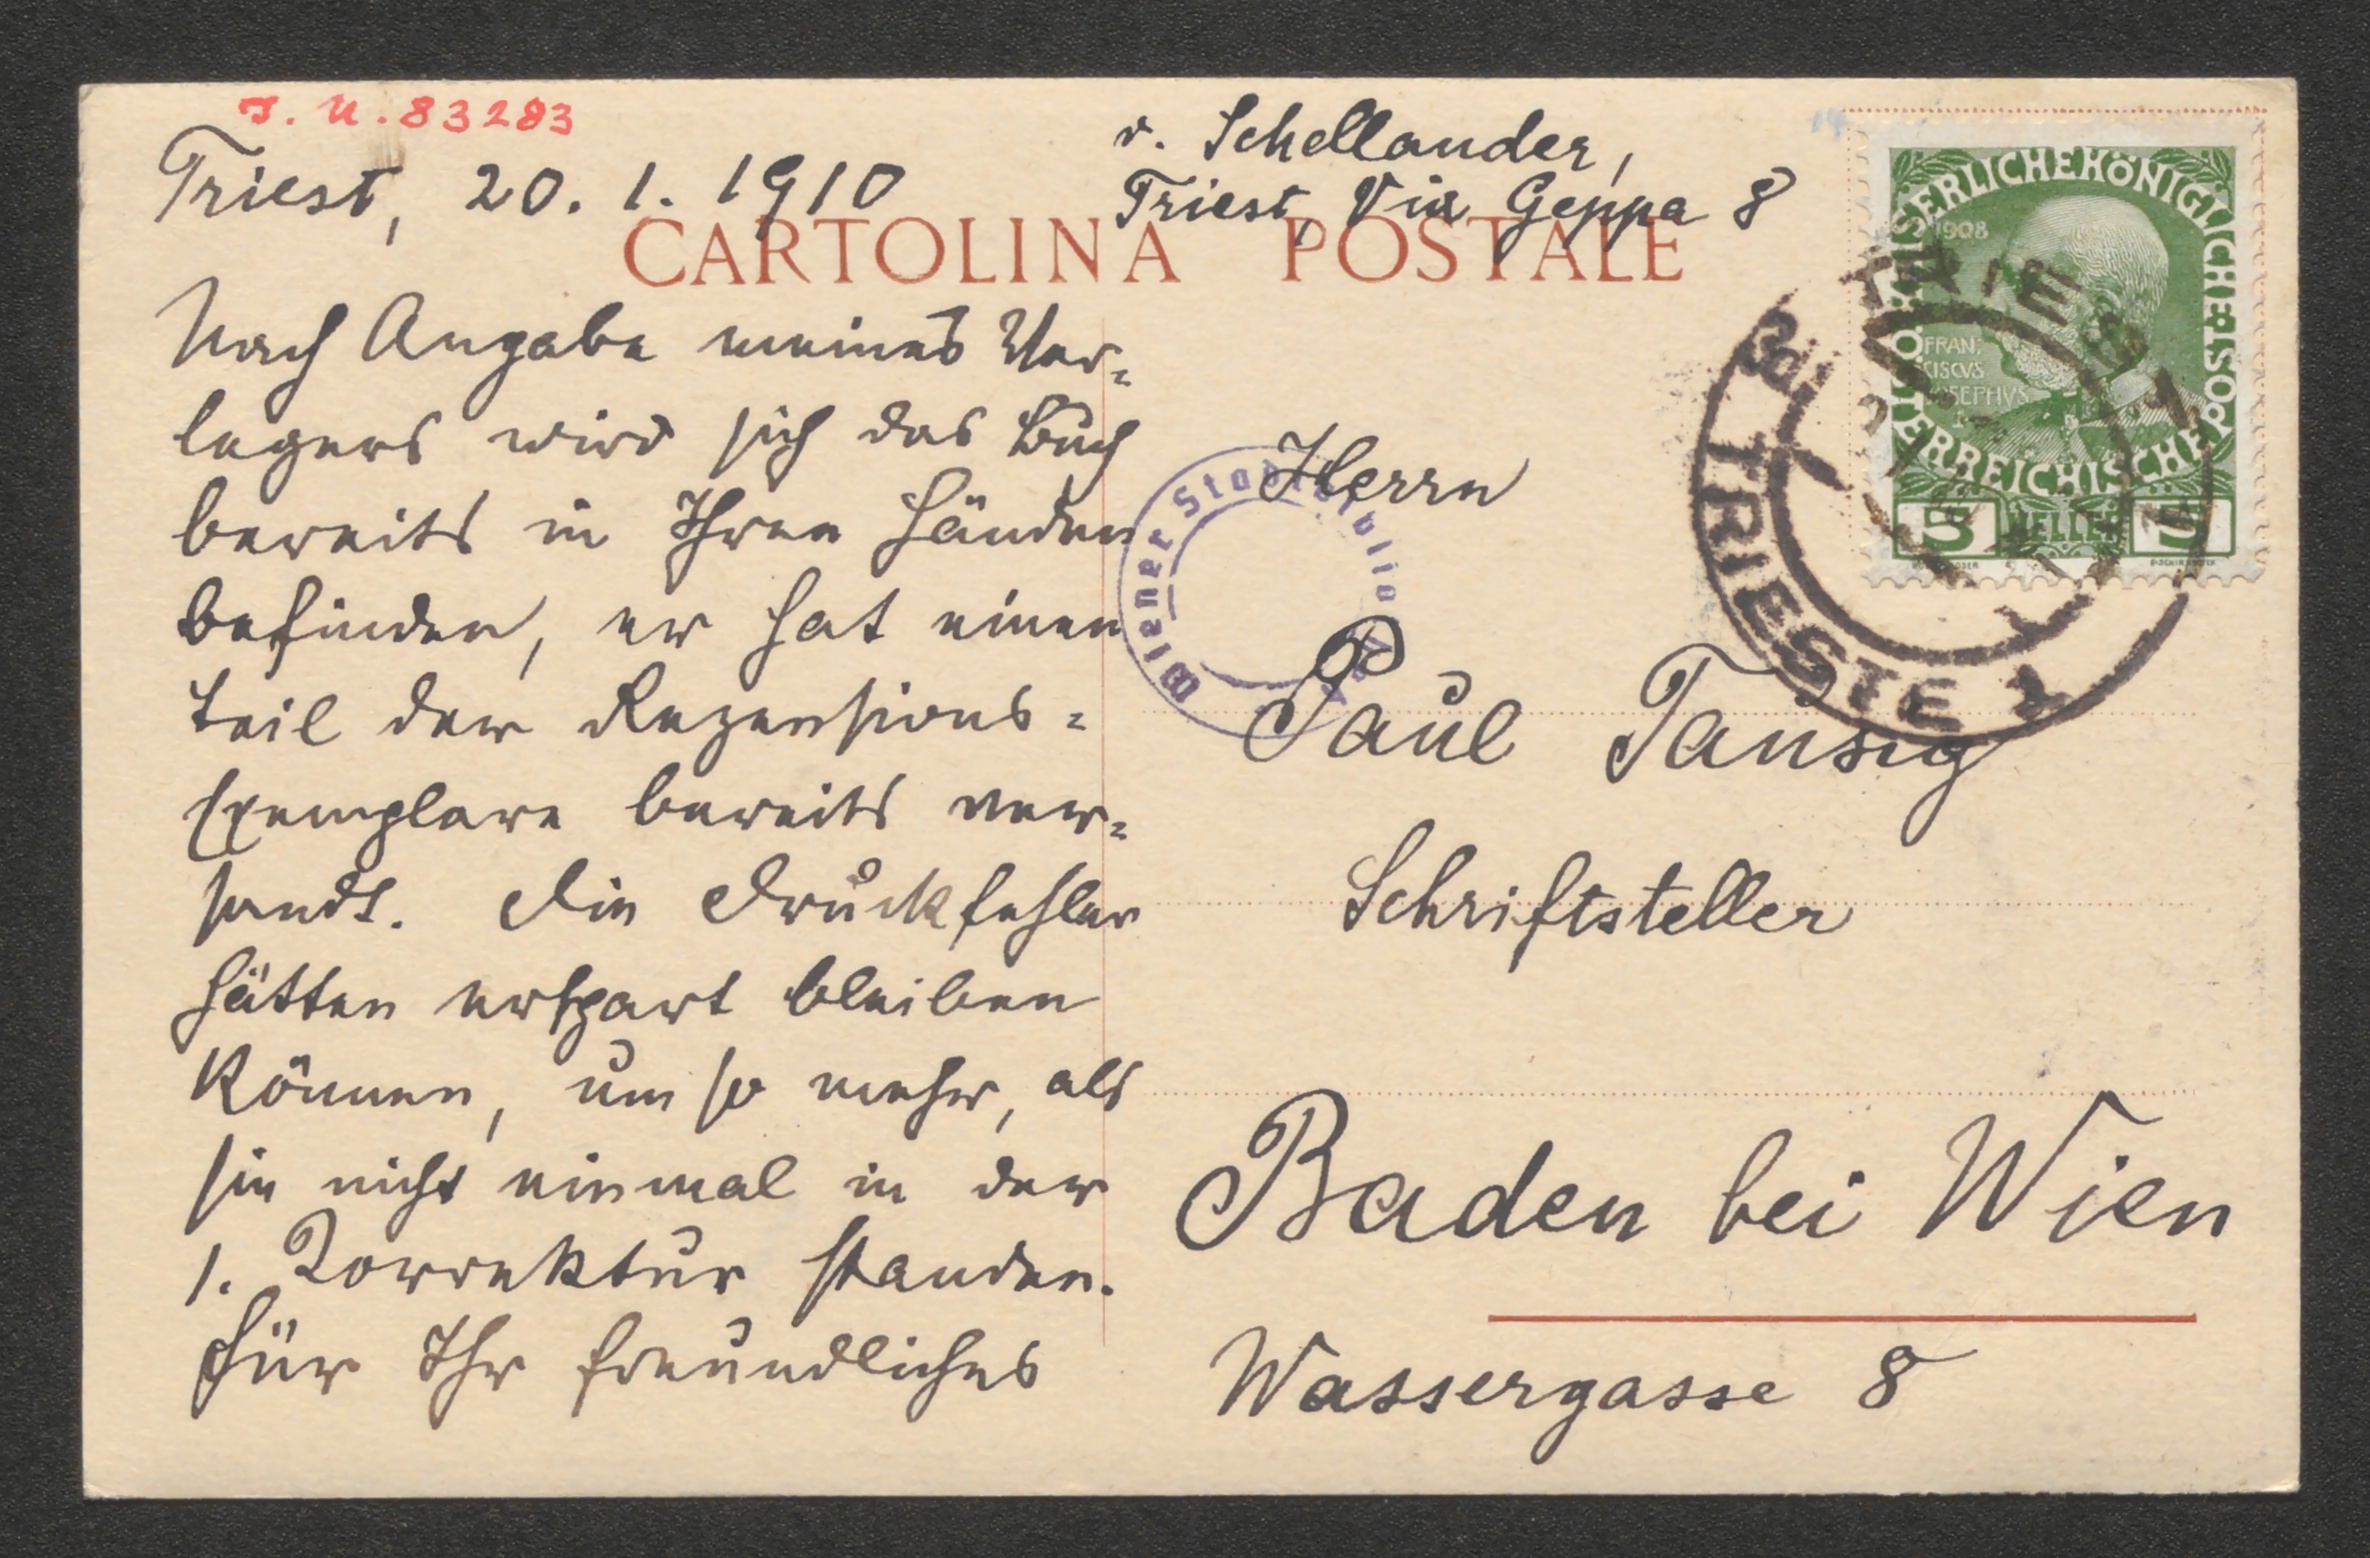 J. N. 83283
Triest, 20. 1. 1910
v. Schellander,
Triest, Via Geppa 8
CARTOLINA POSTALE
Nach Angabe meines Ver-
legers wird sich das Buch
bereits in Ihren Händen
befinden, er hat einen
teil der Rezensions-
exemplare bereits ver-
sandt. Die Druckfehler
hätten erspart bleiben
können, um so mehr, als
sie nicht einmal in der
1. Korrektur standen.
Für Ihr freundliches
Herrn
Paul Tausig
Schriftsteller
Baden bei Wien
Wassergasse 8
Wiener Stadtbibliothek
KAISERLICHE KÖNIGLICHE ÖSTERREICHISCHE POST
1908
FRAN;
CISCVS
IOSEPHVS
5 HELLER 5
TRIEST 1
TRIESTE 1